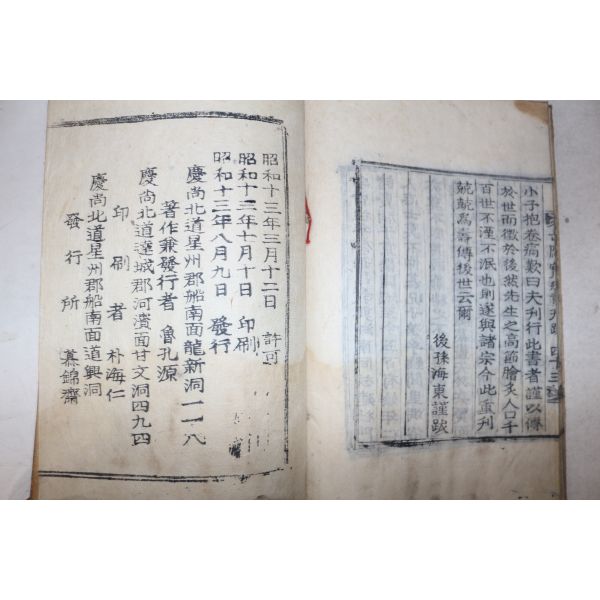 小子抱卷痛歎曰夫刋行此書者謹以傳
於世而徵於後然先生之高節膾炙人口千
百世不湮不泯也則遂與諸宗今此重刋
兢兢焉壽傳後世云爾
後孫海東謹跋
昭和十三年三月十二日 許可
昭和十三年七月十日 印刷
昭和十三年八月九日 發行
慶尙北道星州郡船南面龍新洞一一八
著作兼發行者 魯孔源
慶尙北道達城郡河濱面甘文洞四九四
印刷者 朴海仁
慶尙北道星州郡船南面道興洞
發行所 慕錦齋